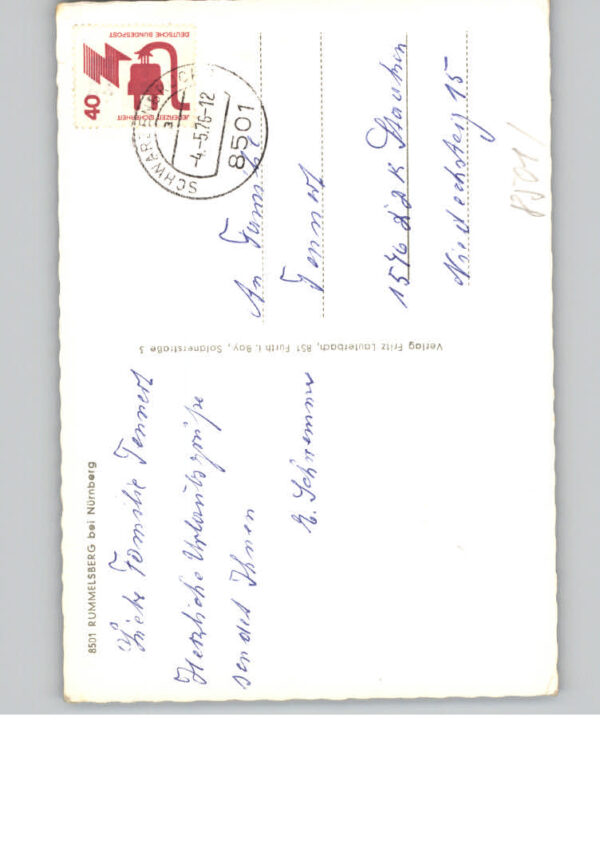 8501 RUMMELSBERG bei Nürnberg
Liebe Familie Tennert
Herzliche Urlaubsgrüße
sendet Ihnen
Schramm
Verlag Fritz Lauterbach, 851 Fürth i. Bay., Soldnerstraße 3
DEUTSCHE BUNDESPOST
40
JEDERZEIT SICHERHEIT
-4.-5.76-12
8501
An Familie
Tennert
1546 Staaken
15
8501/